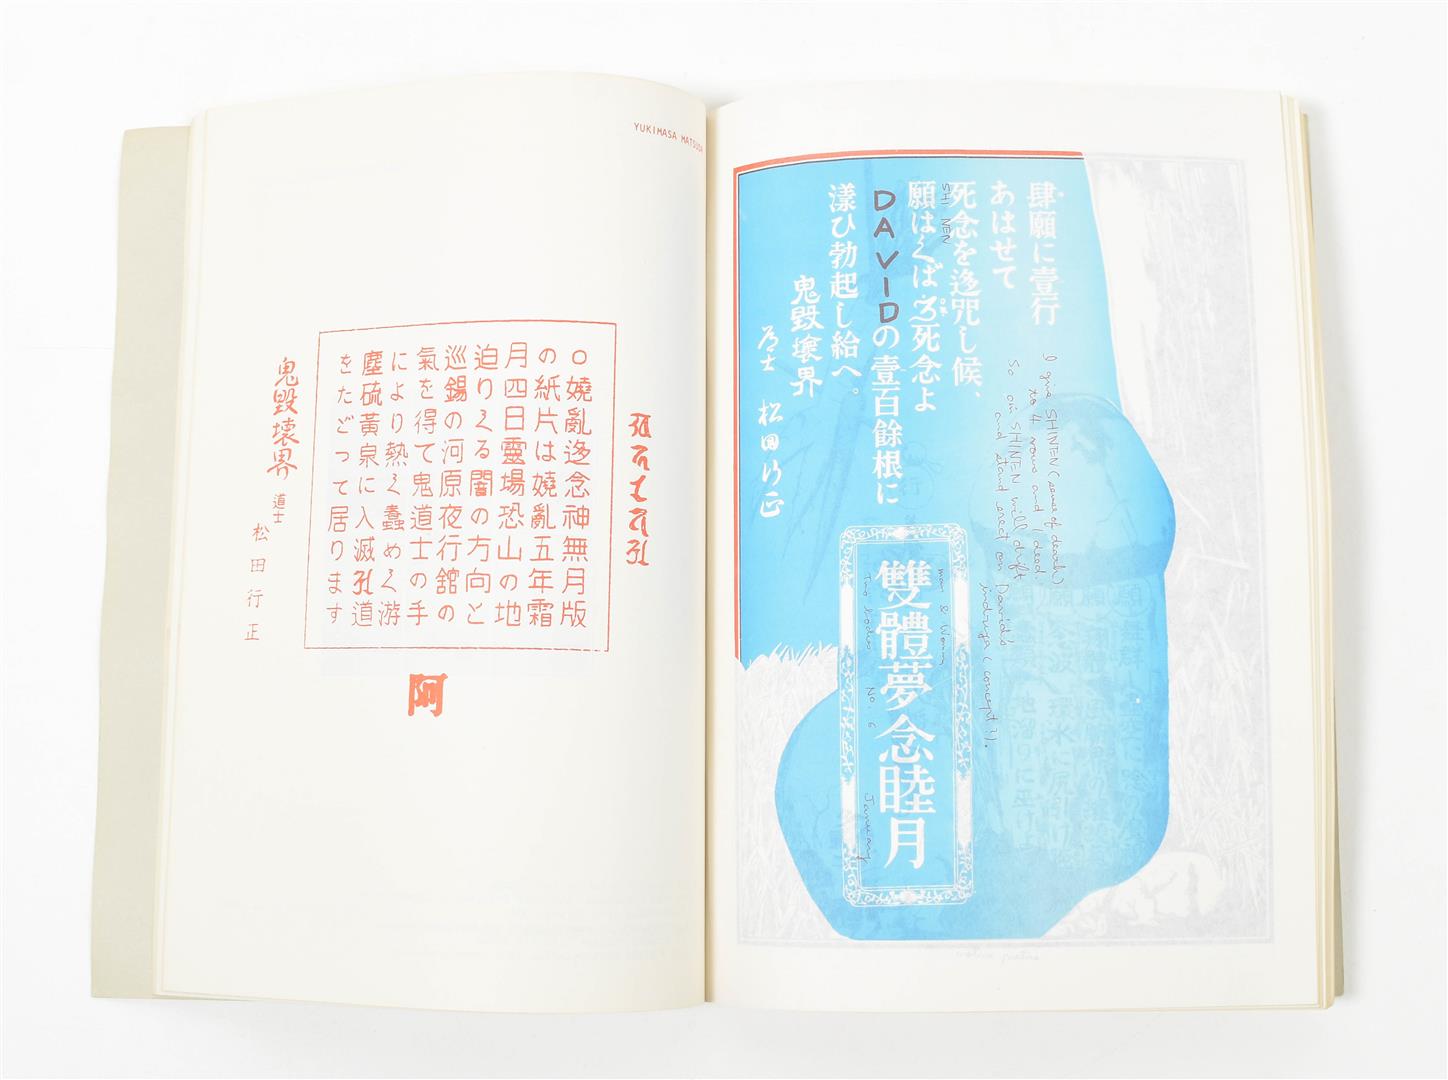 YUKIMASA MATSUDA
○嬈亂迻念神無月版
の紙片は嬈亂五年霜
月四日靈場恐山の地
迫りくる闇の方向と
巡錫の河原夜行舘の
氣を得て鬼道士の手
により熱く蠢めく游
塵硫黃泉に入滅道
をたどって居ります
鬼毀壊界 道士 松田行正
阿
肆願に壹行
あはせて
死念を迻咒し候、
SHI NEN
願はくば死念よ
DAVIDの壹百餘根に
漾ひ勃起し給へ。
鬼毀壊界
道士 松田行正
I give SHINEN (sense of death)
to 4 vows and 1 deed
So on SHINEN will drift
and stand erect on David's
indriya (concept?).
man & Woman
雙體夢念睦月
Two bodies No. 6 January